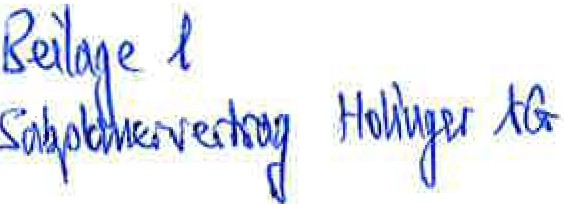 Beilage 1
Subplanervertrag Holinger AG